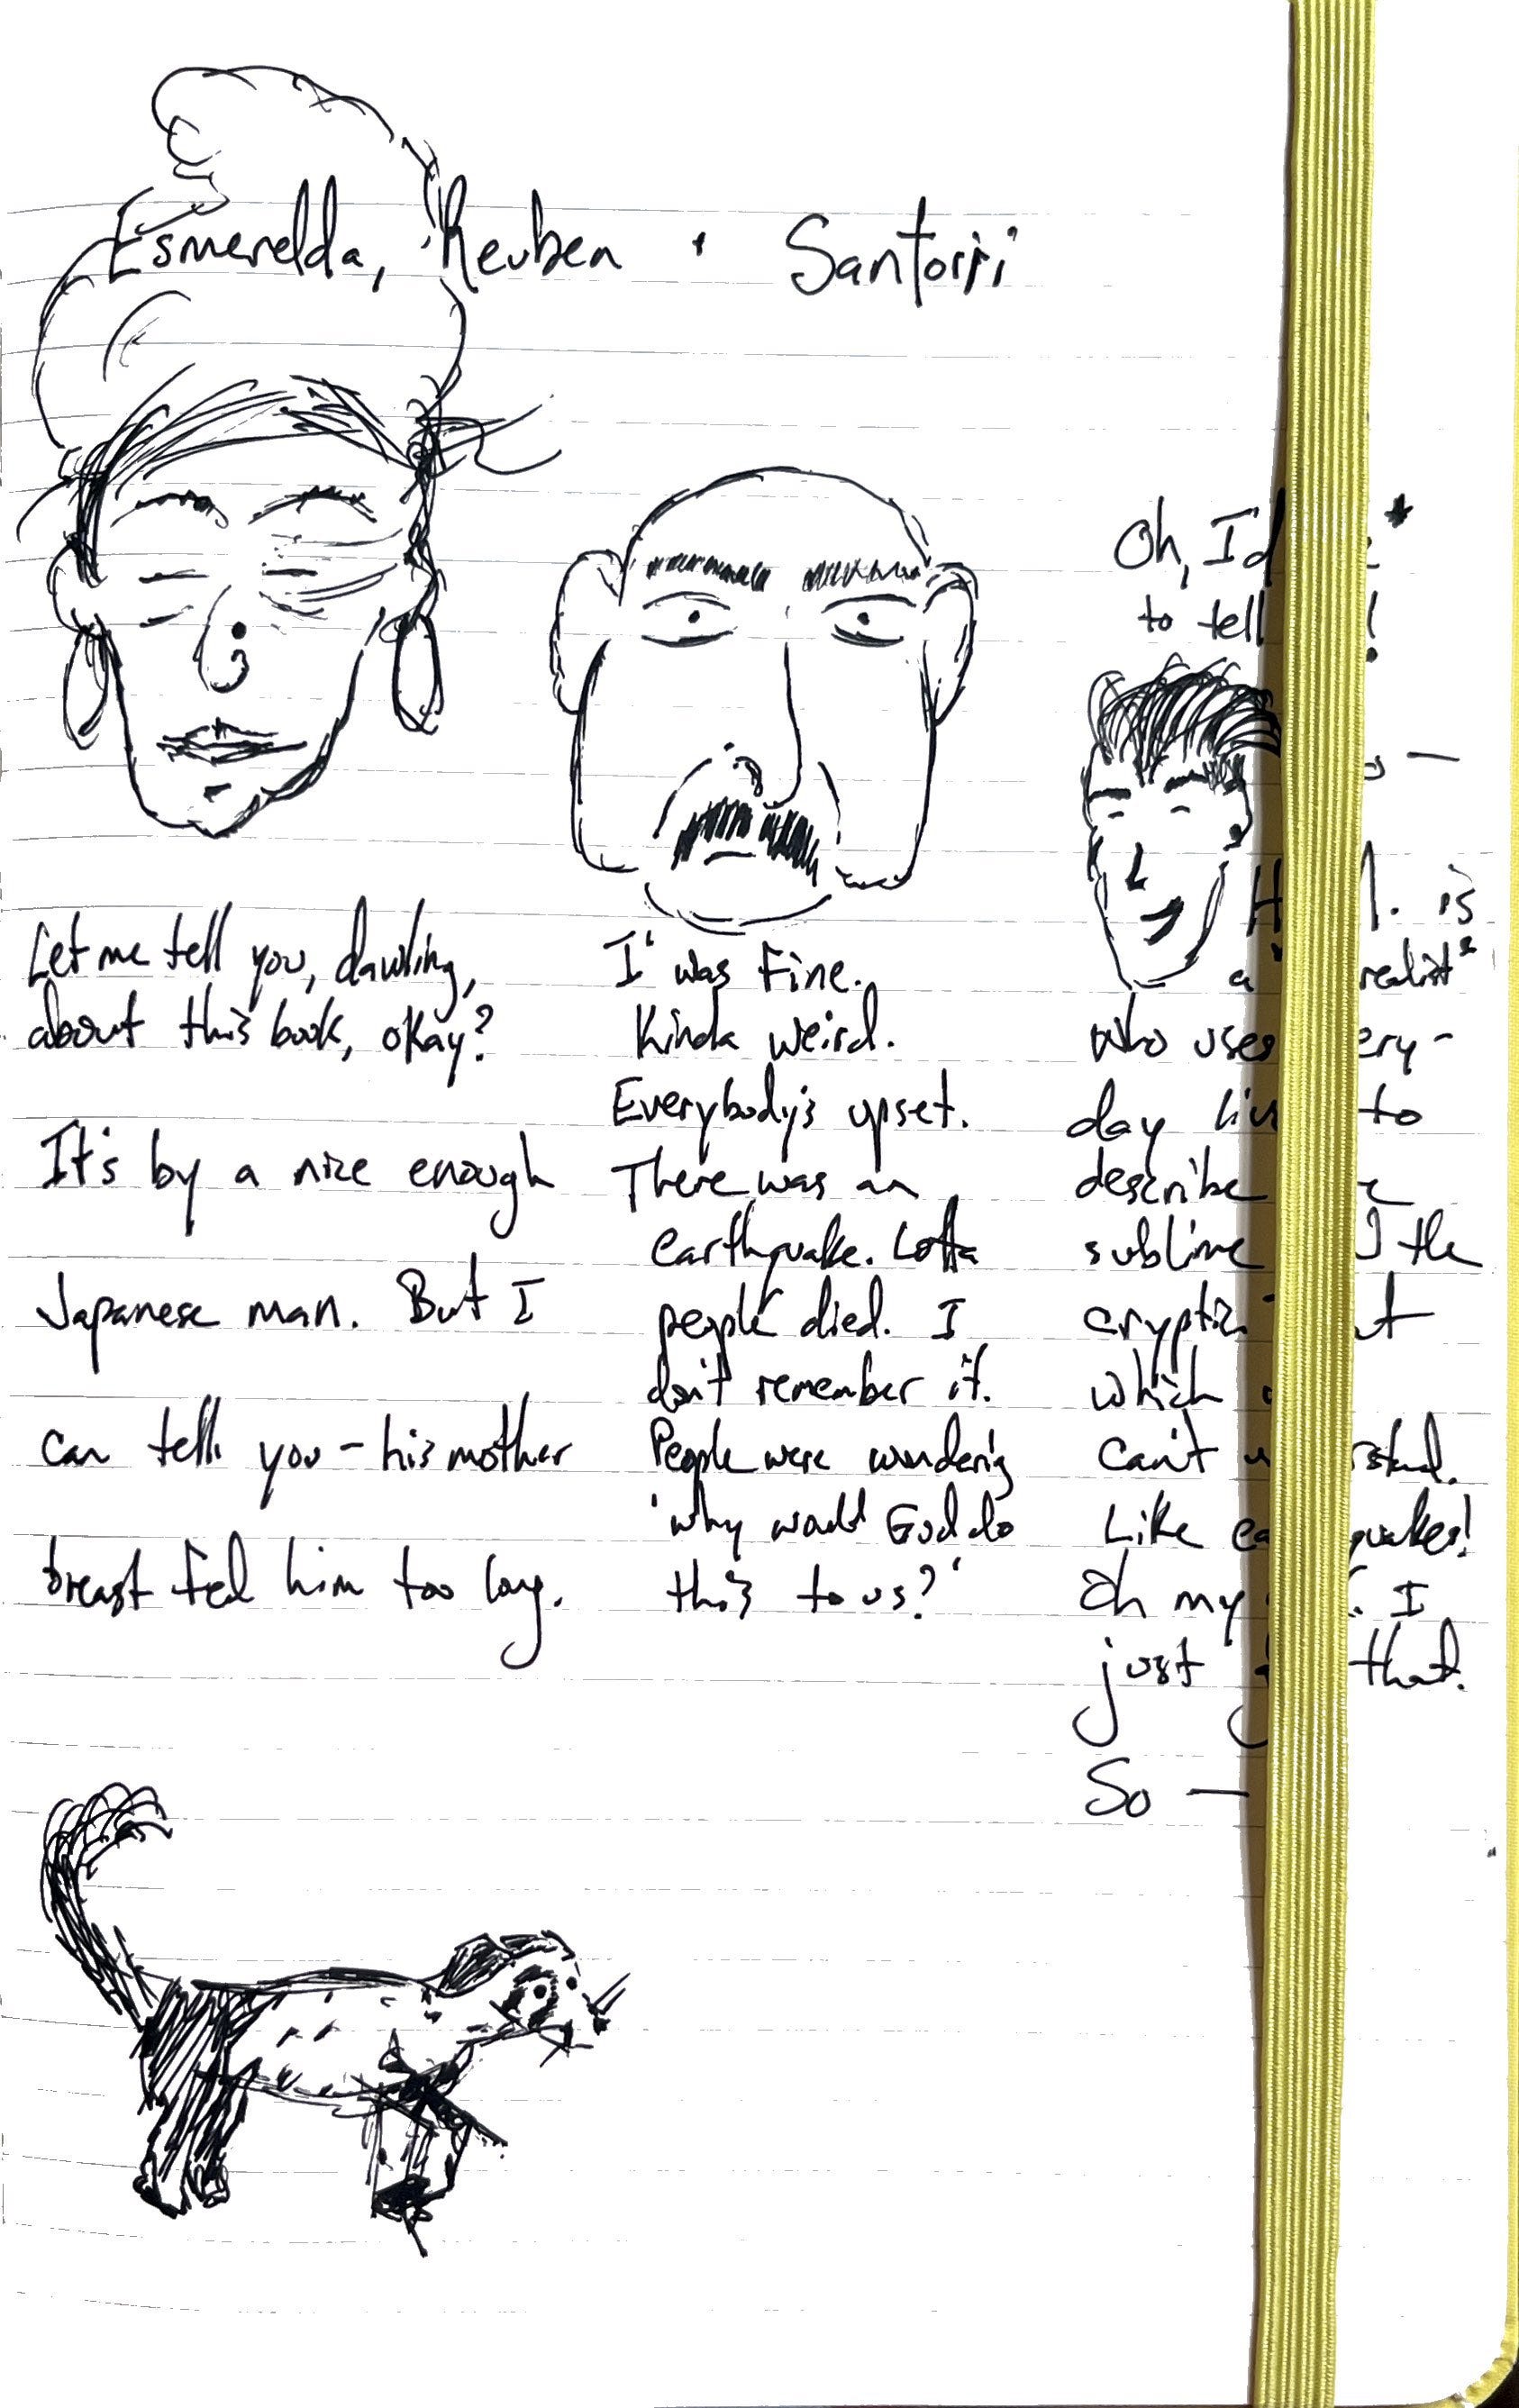 Esmerelda, Reuben + Santorri
Let me tell you, dawling,
about this book, okay?
It's by a nice enough
Japanese man. But I
can tell you - his mother
breast fed him too long.
I was fine.
Kinda weird.
Everybody's upset.
There was an
earthquake. Lotta
people died. I
don't remember it.
People were wondering
'why would God do
this to us?'
Oh,
to tell !
—
is
a
who uses
day to
describe
sublime the
cryptic
which
can't
Like
Oh my I
just that.
So —